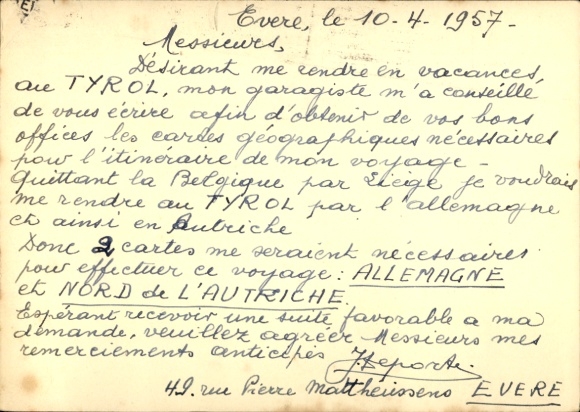 Evere, le 10-4-1957-
Messieurs,
Désirant me rendre en vacances,
au TYROL, mon garagiste m'a conseillé
de vous écrire afin d'obtenir de vos bons
offices les cartes géographiques nécessaires
pour l'itinéraire de mon voyage -
Quittant la Belgique par Liège je voudrais
me rendre au TYROL par l'allemagne
et ainsi en Autriche
Donc 2 cartes me seraient nécessaires
pour effectuer ce voyage : ALLEMAGNE
et NORD de L'AUTRICHE.
Espérant recevoir une suite favorable a ma
demande, veuillez agréer Messieurs mes
remerciements anticipés
rue Pierre Mattheussens EVERE